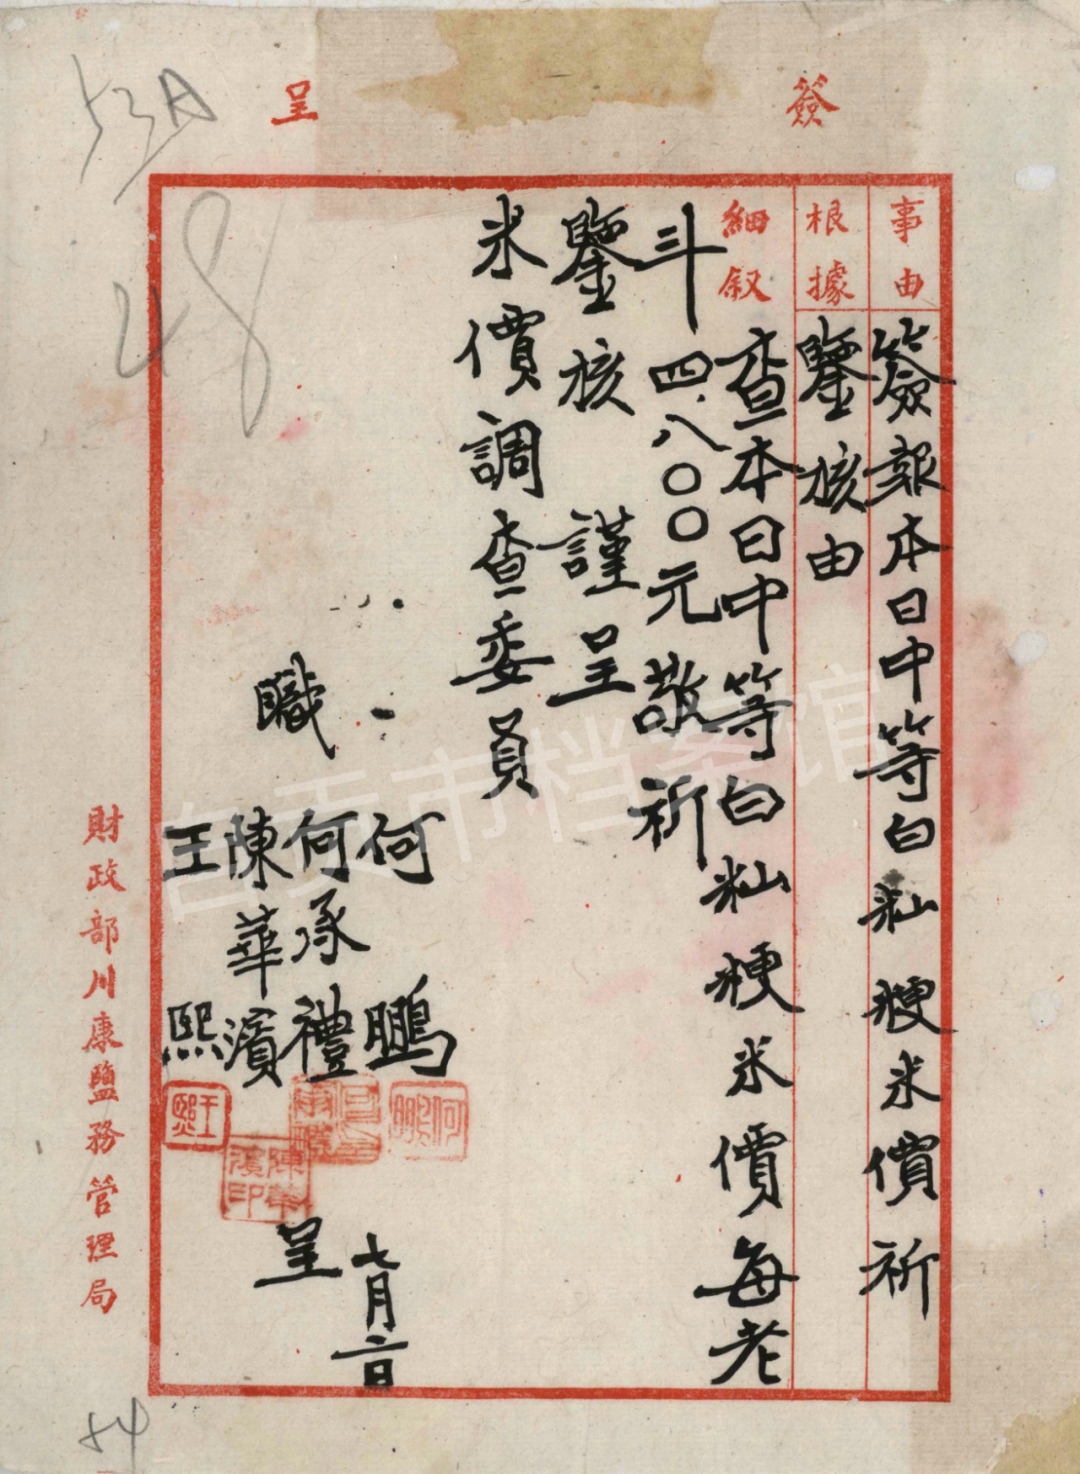 簽呈
事由
簽報本日中等白籼粳米價祈
根據
鑒核由
細叙
查本日中等白籼粳米價每老
斗四、八〇〇元敬祈
鑒核 謹呈
米價調查委員
職
何鵬
何承禮
陳華濱
王熙
呈
七月二日
何鵬
陳華濱印
王熙
財政部川康鹽務管理局
53A
48
54
自贡市档案馆